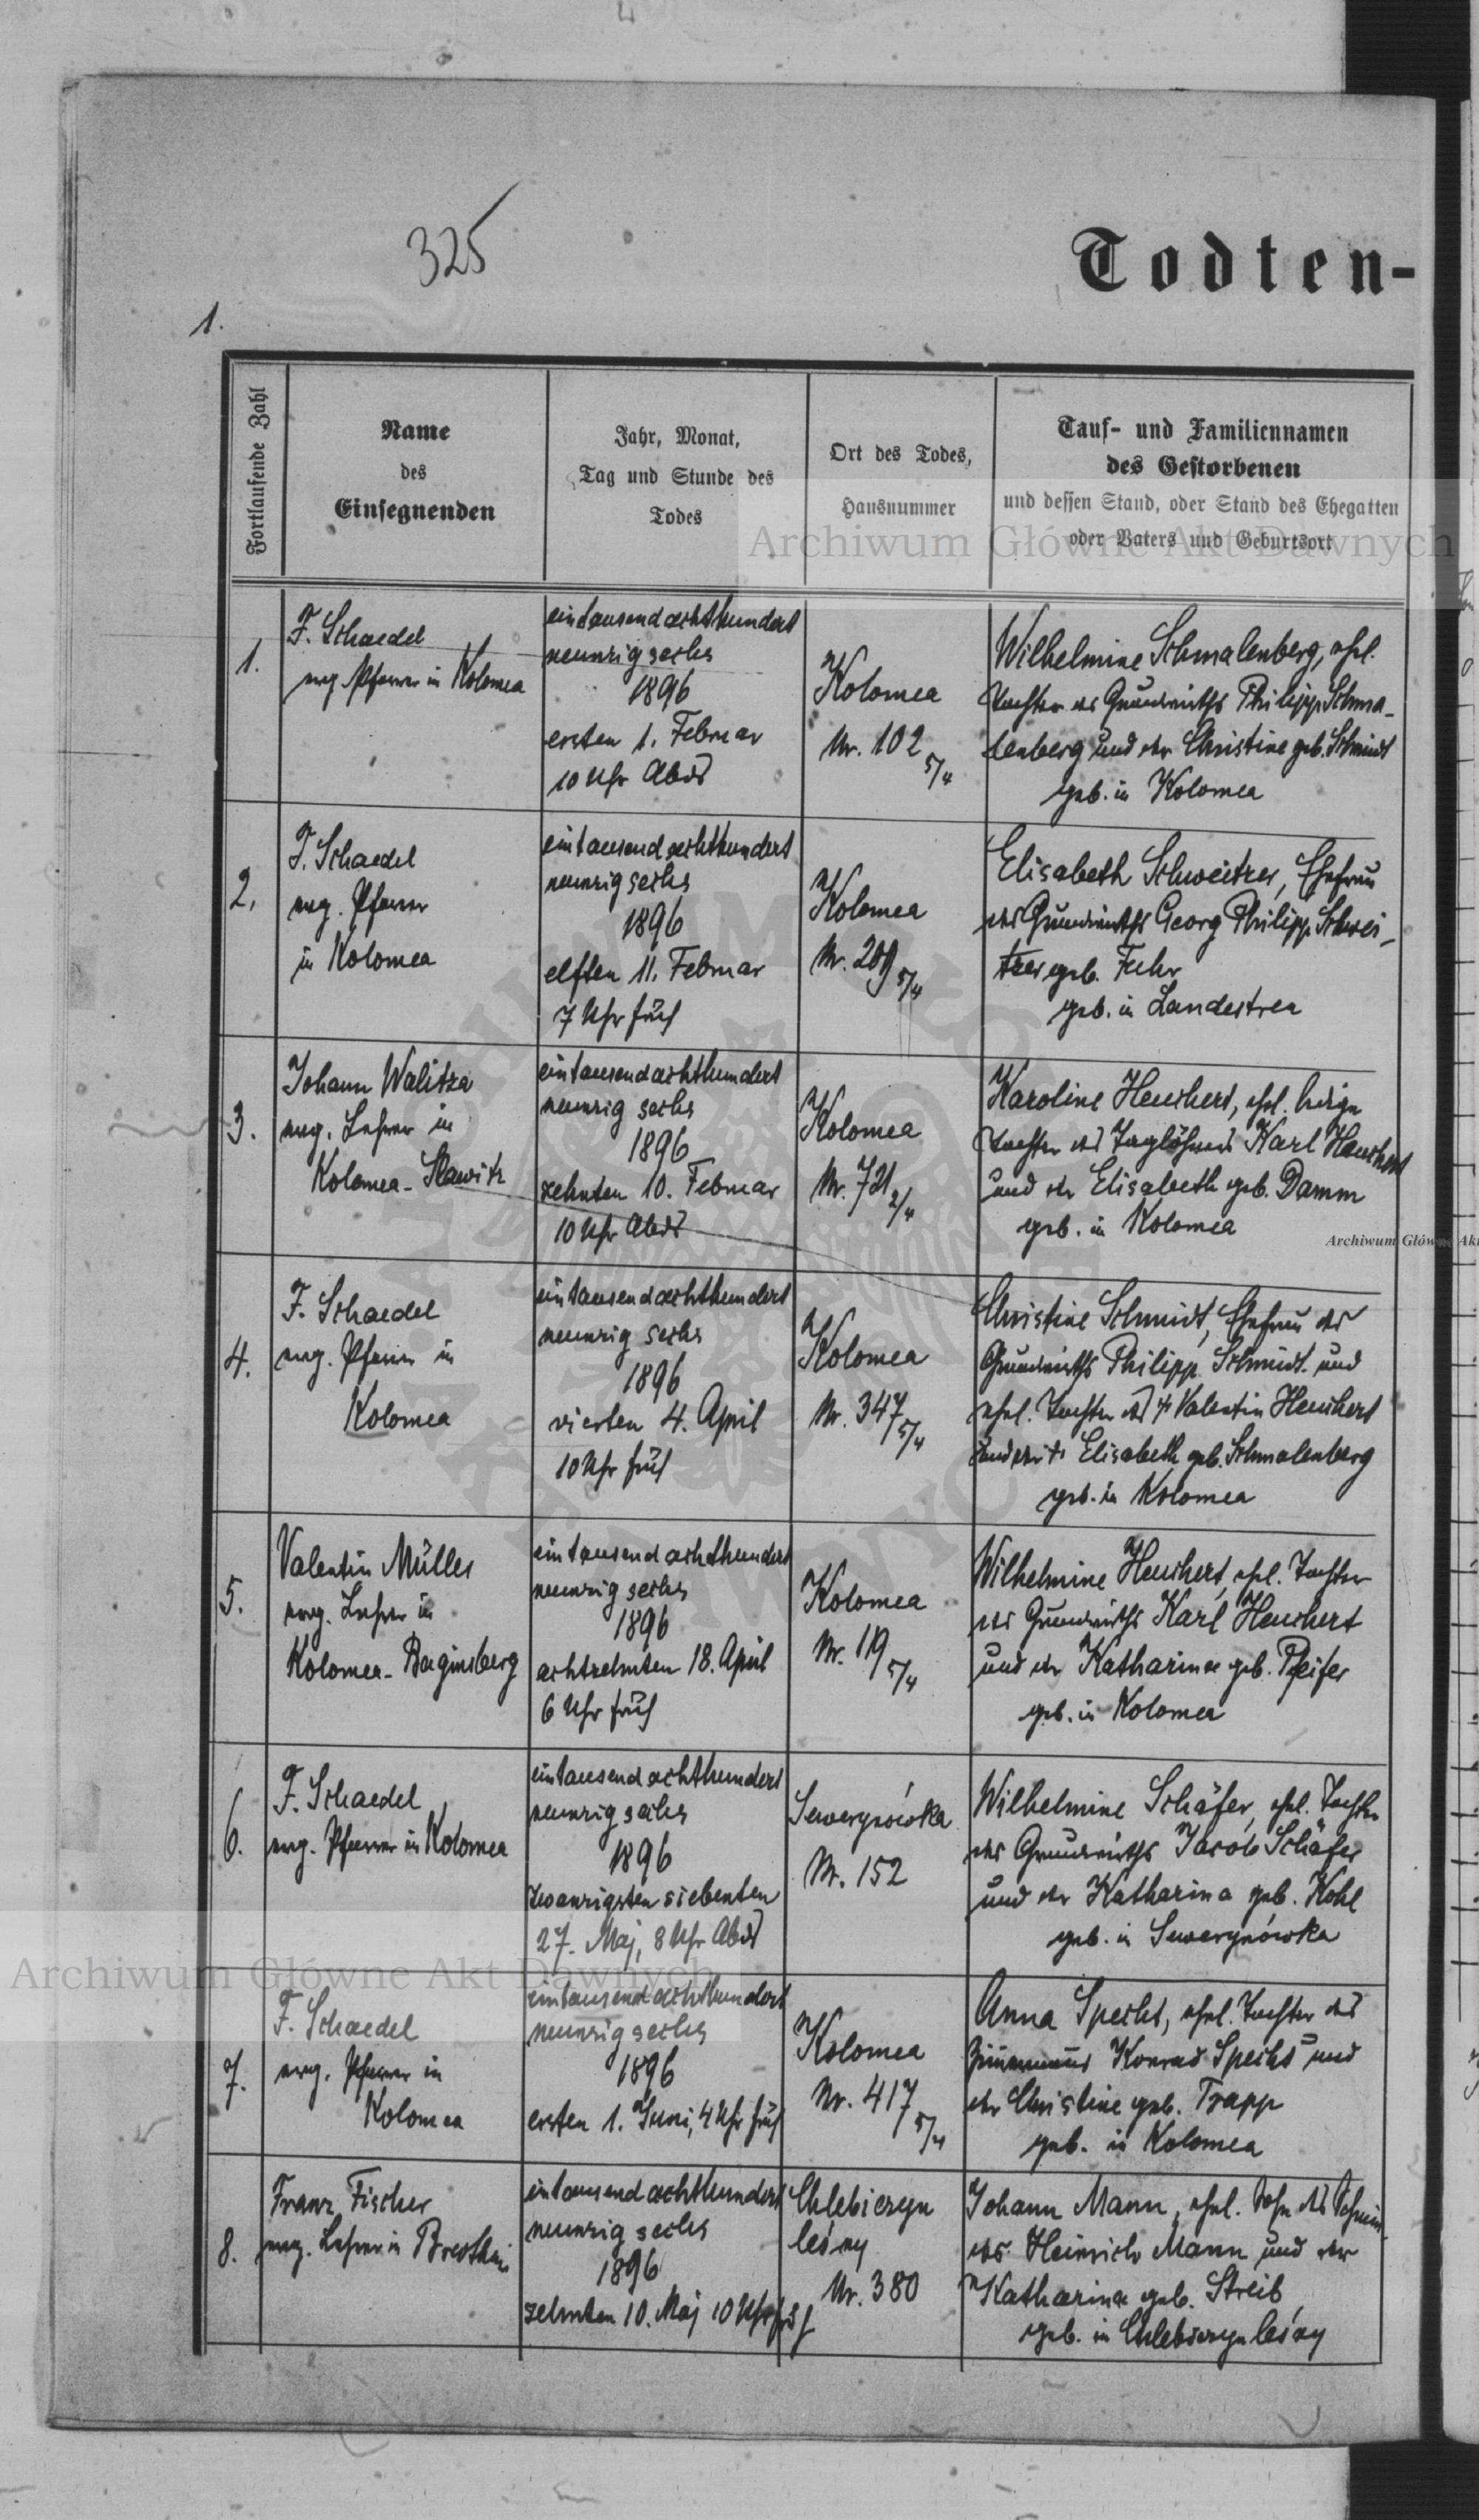 325
Todten-
1.
Fortlaufende Zahl
Name
des
Einsegnenden
Jahr, Monat,
Tag und Stunde des
Todes
Ort des Todes,
Hausnummer
Tauf- und Familiennamen
des Gestorbenen
und dessen Stand, oder Stand des Ehegatten
oder Vaters und Geburtsort
Archiwum Główne Akt Dawnych
1.
F. Schaedel
evg. Pfarrer in Kolomea
eintausendachthundert
neunzig sechs
1896
ersten 1. Februar
10 Uhr Abds
Kolomea
Nr. 102 5/4
Wilhelmine Schmalenberg, ehel.
Tochter des Grundwirths Philipp Schma-
lenberg und der Christine geb. Schmidt
geb. in Kolomea
2.
F. Schaedel
evg. Pfarrer
in Kolomea
eintausendachthundert
neunzig sechs
1896
elften 11. Februar
7 Uhr früh
Kolomea
Nr. 209 5/4
Elisabeth Schweitzer, Ehefrau
des Grundwirths Georg Philipp Schwei-
tzer geb. Fuhr
geb. in Landestreu
3.
Johann Walitza
evg. Lehrer in
Kolomea-Slawitz
eintausendachthundert
neunzig sechs
1896
zehnten 10. Februar
10 Uhr Abds
Kolomea
Nr. 721 2/4
Karoline Heuchert, ehel. ledige
Tochter des Taglöhners Karl Heuchert
und der Elisabeth geb. Damm
geb. in Kolomea
Archiwum Główne Akt
4.
F. Schaedel
evg. Pfarrer in
Kolomea
eintausendachthundert
neunzig sechs
1896
vierten 4. April
10 Uhr früh
Kolomea
Nr. 347 5/4
Christine Schmidt, Ehefrau des
Grundwirths Philipp Schmidt und
ehel. Tochter des † Valentin Heuchert
und der † Elisabeth geb. Schmalenberg
geb. in Kolomea
5.
Valentin Müller
evg. Lehrer in
Kolomea-Baginsberg
eintausendachthundert
neunzig sechs
1896
achtzehnten 18. April
6 Uhr früh
Kolomea
Nr. 119 5/4
Wilhelmine Heuchert, ehel. Tochter
des Grundwirths Karl Heuchert
und der Katharina geb. Pfeifer
geb. in Kolomea
6.
F. Schaedel
evg. Pfarrer in Kolomea
eintausendachthundert
neunzig sechs
1896
zwanzigsten siebenten
27. Maj, 8 Uhr Abds
Sewerynówka
Nr. 152
Wilhelmine Schäfer, ehel. Tochter
des Grundwirths Jacob Schäfer
und der Katharina geb. Kohl
geb. in Sewerynówka
Archiwum Główne Akt Dawnych
7.
F. Schaedel
evg. Pfarrer in
Kolomea
eintausendachthundert
neunzig sechs
1896
ersten 1. Juni, 4 Uhr früh
Kolomea
Nr. 417 5/4
Anna Specht, ehel. Tochter des
Zimmermanns Konrad Specht und
der Christine geb. Trapp
geb. in Kolomea
8.
Franz Fischer
evg. Lehrer in
eintausendachthundert
neunzig sechs
1896
zehnten 10. Maj 10 Uhr früh
Chlebiczyn
leśny
Nr. 380
Johann Mann, ehel. Sohn des Schmie-
des Heinrich Mann und der
Katharina geb. Streib
geb. in Chlebiczyn leśny